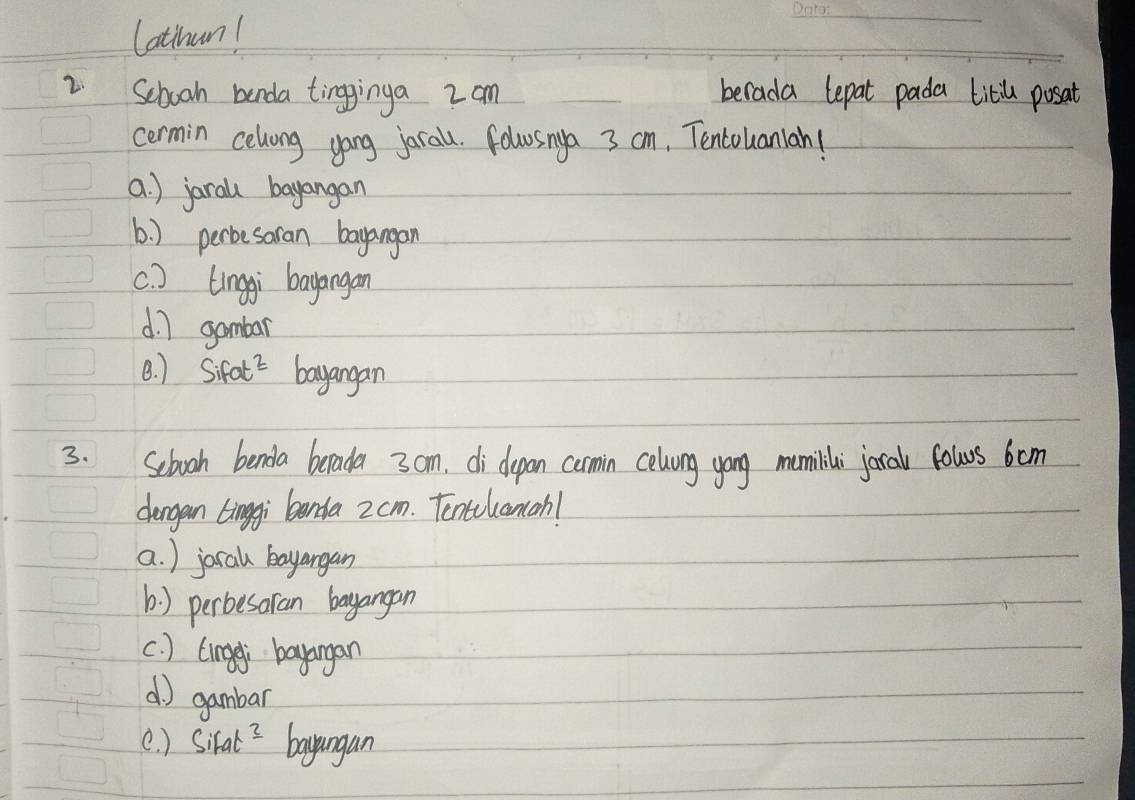 Date:
Latihan!
2. Sebuah benda tingginya 2 cm berada tepat pada titik pusat
cermin cekung yang jarak fokusnya 3 cm. Tentukanlah!
a.) jarak bayangan
b.) perbesaran bayangan
c.) tinggi bayangan
d.) gambar
e.) Sifat² bayangan
3. Sebuah benda berada 3 cm. di depan cermin cekung yang memiliki jarak fokus 6 cm
dengan tinggi benda 2 cm. Tentukanlah!
a.) jarak bayangan
b.) perbesaran bayangan
c.) tinggi bayangan
d.) gambar
e.) Sifat² bayangan